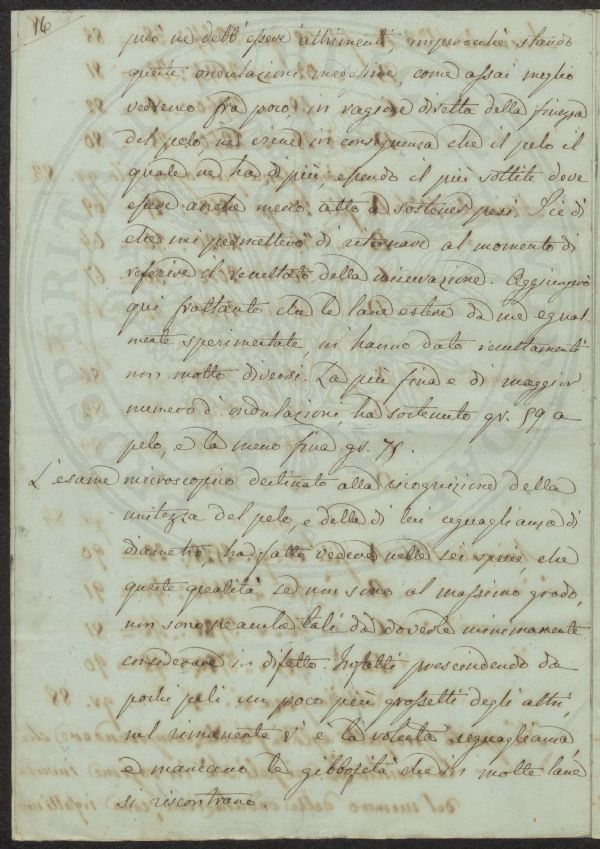 16
può ne debb' essere altrimenti, imperocchè stando
queste ondulazioni medesime, come assai meglio
vedremo fra poco, in ragione diretta della finezza
del pelo ne viene in conseguenza che il pelo il
quale ne ha di più, essendo il più sottile deve
essere anche meno atto a sostener pesi. Più di
che mi permetterò di ritornare al momento di
referire il resultato della misurazione. Aggiungerò
qui frattanto che le lane estere da me egual-
mente sperimentate, mi hanno dato resultamenti
non molto diversi. La più fina e di maggior
numero d'ondulazioni, ha sostenuto gr. 59 a
pelo, e la meno fina gr. 75.
L'esame microscopico destinato alla recognizione della
nitezza del pelo, e della di lui eguaglianza di
diametro, ha fatto vedere nelle sei specie, che
queste qualità se non sono al massimo grado,
non sono neanche tali da doverle minimamente
considerare in difetto. Infatti prescindendo da
pochi peli un poco più grossetti degli altri,
nel rimanente v'è la voluta eguaglianza
e mancano le gibbosità che in molte lane
si riscontrano.